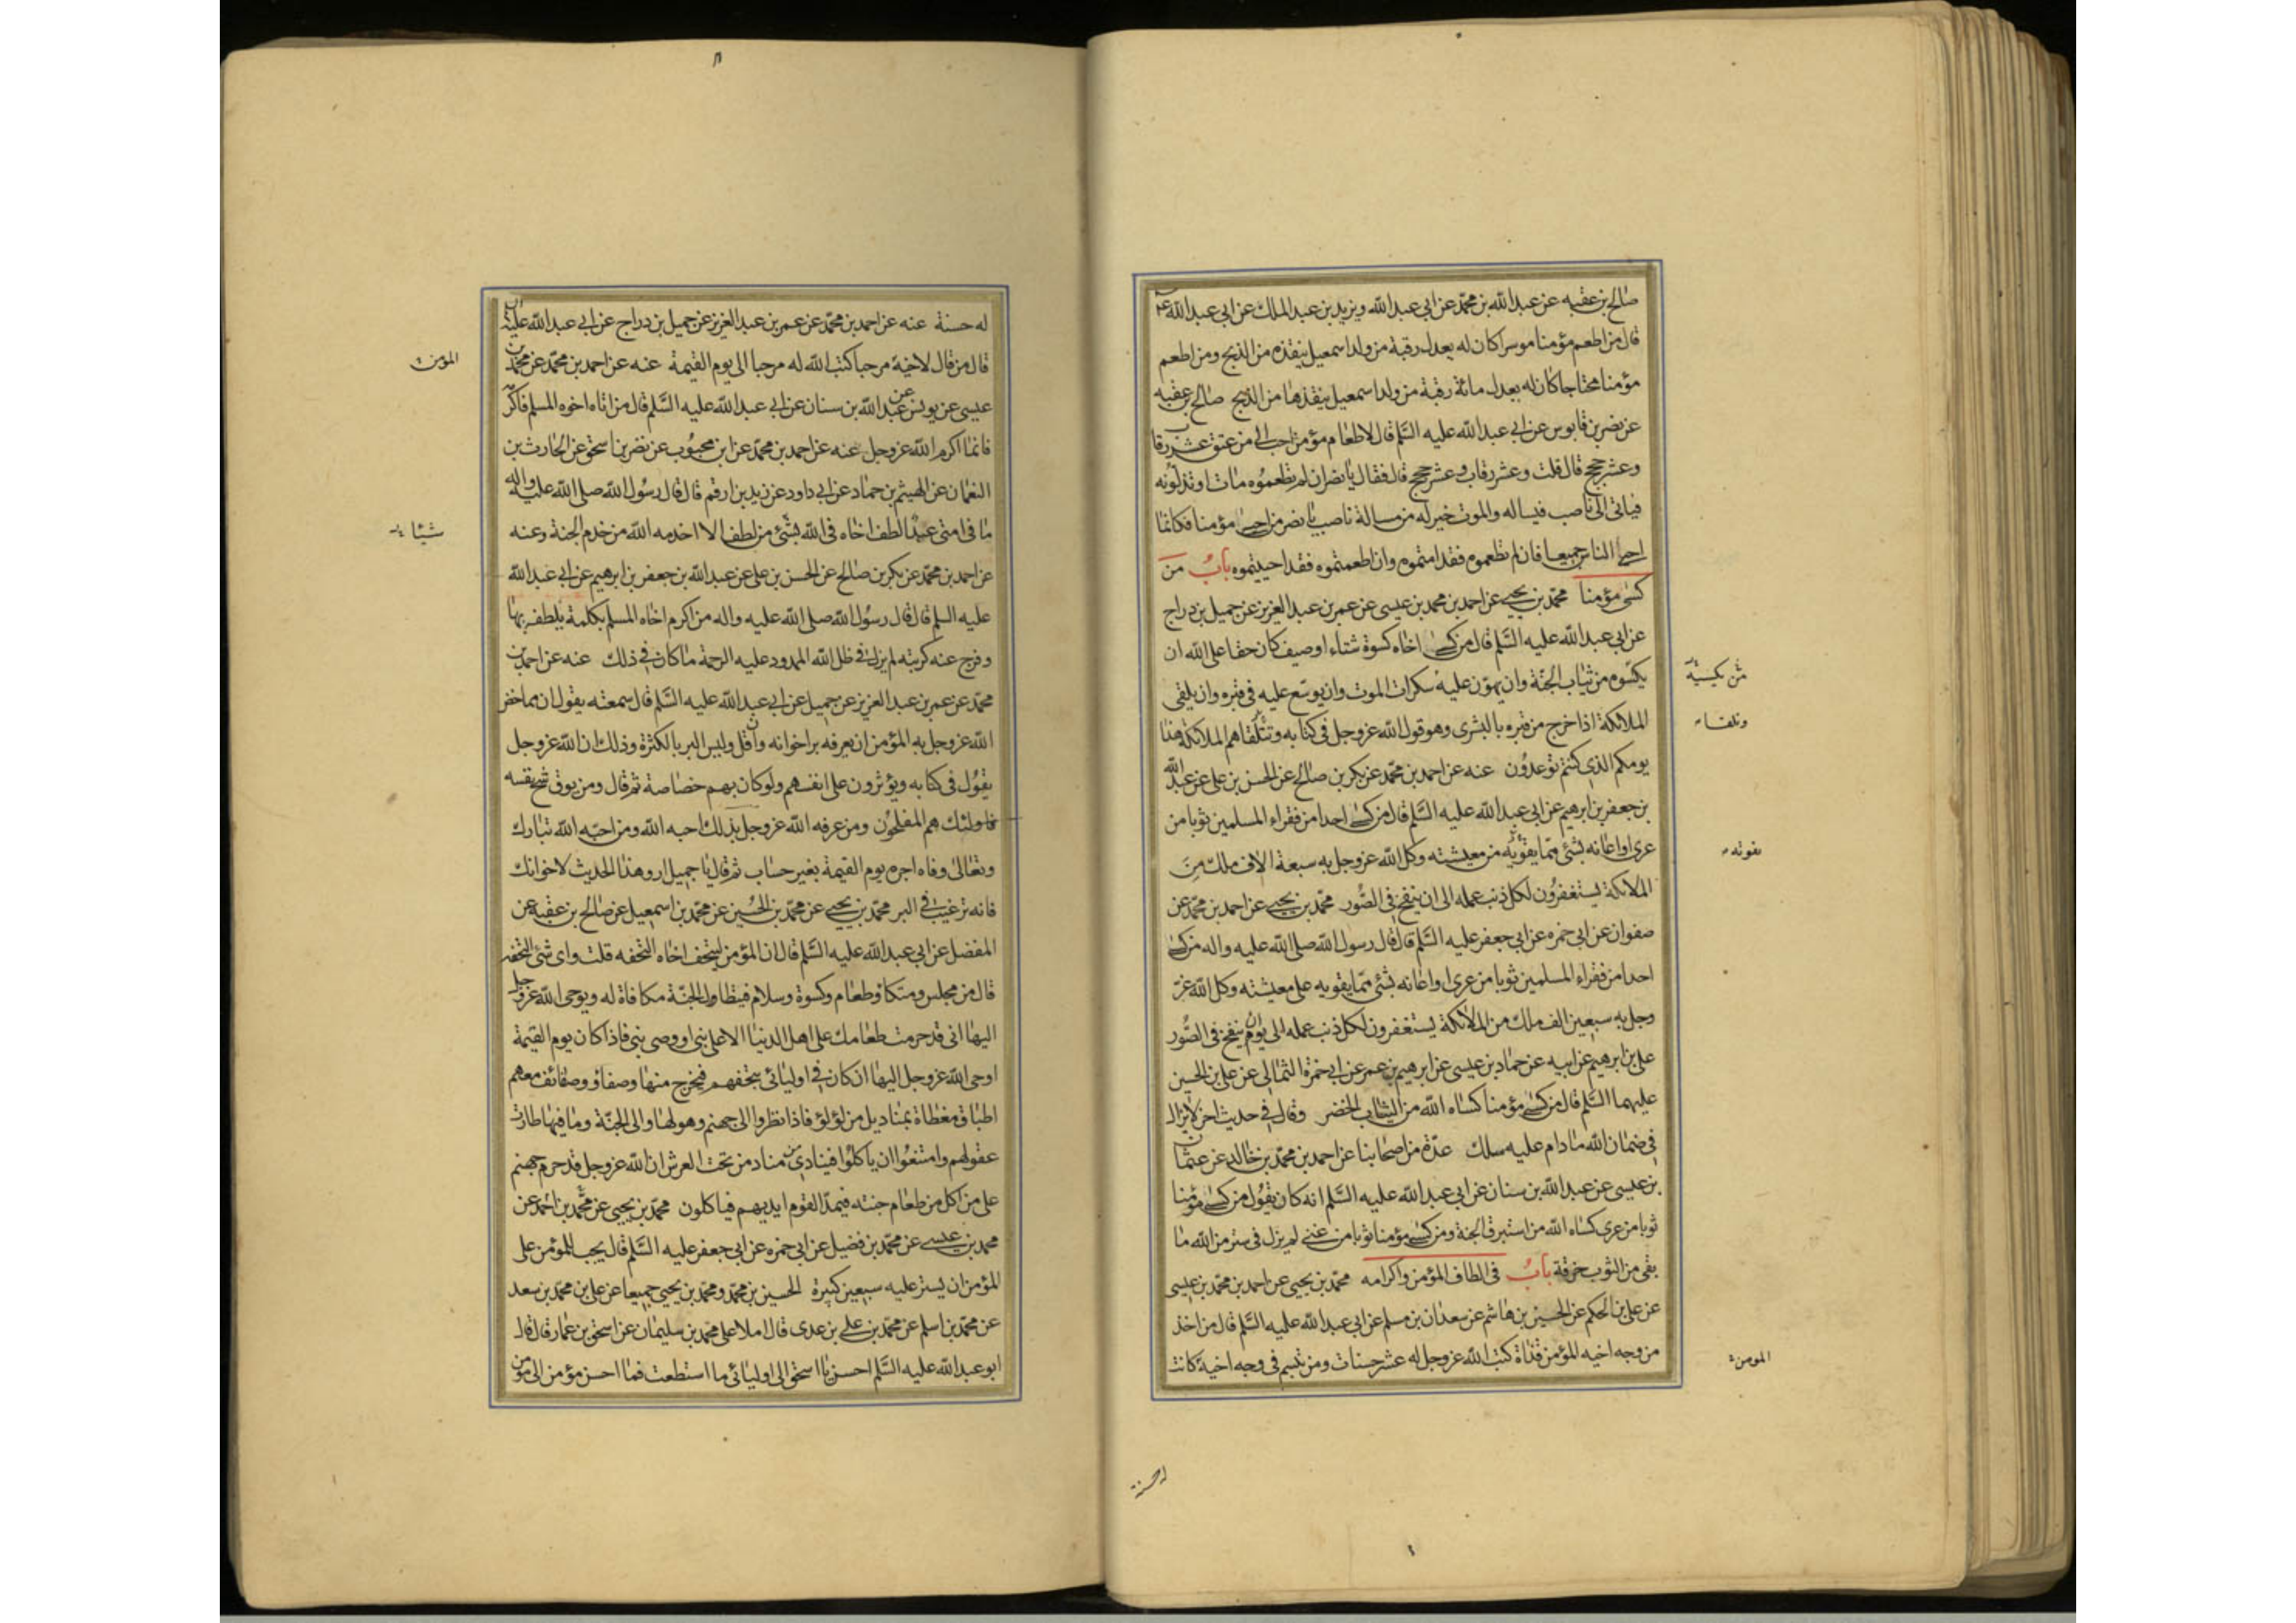 صالح بن عقبه عن عبد الله بن محمد عن ابي عبد الله ويزيد بن عبد الملك عن ابي عبد الله ع
قال من اطعم مؤمنا موسرا كان له يعدل رقبة من ولد اسمعيل ينقذه من الذبح ومن اطعم
مؤمنا محتاجا كان له يعدل مائة رقبة من ولد اسمعيل ينقذها من الذبح صالح بن عقبه
عن نصر بن قابوس عن ابي عبد الله عليه السلم قال لاطعام مؤمن احب الي من عتق عشر رقاب
وعشر حجج قال قلت وعشر رقاب وعشر حجج قال فقال يا نصر ان لم تطعموه مات او تذلونه
فياتي الى ناصب فيساله والموت خير له من مسالة ناصب يا نصر من احيى مؤمنا فكانما
احيى الناس جميعا فان لم تطعموه فقد امتموه وان اطعمتموه فقد احييتموه باب من
كسى مؤمنا محمد بن يحيى عن احمد بن محمد بن عيسى عن عمر بن عبد العزيز عن جميل بن دراج
عن ابي عبد الله عليه السلم قال من كسى اخاه كسوة شتاء او صيف كان حقا على الله ان
يكسوه من ثياب الجنة وان يهون عليه سكرات الموت وان يوسع عليه في قبره وان يلقى
الملائكة اذا خرج من قبره بالبشرى وهو قول الله عز وجل في كتابه وتتلقاهم الملائكة هذا
يومكم الذي كنتم توعدون عنه عن احمد بن محمد عن بكر بن صالح عن الحسن بن علي عن عبد الله
بن جعفر بن ابرهيم عن ابي عبد الله عليه السلم قال من كسى احدا من فقراء المسلمين ثوبا من
عرى او اعانه بشئ مما يقويه من معيشته وكل الله عز وجل به سبعة الاف ملك من
الملائكة يستغفرون لكل ذنب عمله الى ان ينفخ في الصور محمد بن يحيى عن احمد بن محمد عن
صفوان عن ابي حمزه عن ابي جعفر عليه السلم قال قال رسول الله صلى الله عليه واله من كسى
احدا من فقراء المسلمين ثوبا من عرى او اعانه بشئ مما يقويه على معيشته وكل الله عز
وجل به سبعين الف ملك من الملائكة يستغفرون لكل ذنب عمله الى ينفخ في الصور
علي بن ابرهيم عن ابيه عن حماد بن عيسى عن ابرهيم بن عمر عن ابي حمزة الثمالي عن علي بن الحسين
عليهما السلم قال من كسى مؤمنا كساه الله من الثياب الخضر وقال في حديث اخر لا يزال
في ضمان الله ما دام عليه سلك عدة من اصحابنا عن احمد بن محمد بن خالد عن عثمان
بن عيسى عن عبد الله بن سنان عن ابي عبد الله عليه السلم انه كان يقول من كسى مؤمنا
ثوبا من عرى كساه الله من استبرق الجنة ومن كسى مؤمنا ثوبا من غنى لم يزل في ستر من الله ما
بقى من الثوب خرقة باب في الطاف المؤمن واكرامه محمد بن يحيى عن احمد بن محمد بن عيسى
عن علي بن الحكم عن الحسين بن هاشم عن سعدان بن مسلم عن ابي عبد الله عليه السلم قال من اخذ
من وجه اخيه المؤمن قذاة كتب الله عز وجل له عشر حسنات ومن تبسم في وجه اخيه كانت
المومن
له حسنة
له حسنة عنه عن احمد بن محمد عن عمر بن عبد العزيز عن جميل بن دراج عن ابي عبد الله عليه
قال من قال لاخيه مرحبا كتب الله له مرحبا الى يوم القيمة عنه عن احمد بن محمد عن محمد بن
عيسى عن يونس عن عبد الله بن سنان عن ابي عبد الله عليه السلم قال من اتاه اخوه المسلم فاكرمه
فانما اكرم الله عز وجل عنه عن احمد بن محمد عن ابن محبوب عن نصر بن اسحق عن الحارث بن
النعمان عن الهيثم بن حماد عن ابي داود عن زيد بن ارقم قال قال رسول الله صلى الله عليه واله
ما في امتي عبد الطف اخاه في الله بشئ من لطف الا اخدمه الله من خدم الجنة وعنه
عن احمد بن محمد عن بكر بن صالح عن الحسن بن علي عن عبد الله بن جعفر بن ابرهيم عن ابي عبد الله
عليه السلم قال قال رسول الله صلى الله عليه واله من اكرم اخاه المسلم بكلمة يلطفه بها
وفرج عنه كربته لم يزل في ظل الله الممدود عليه الرحمة ما كان في ذلك عنه عن احمد بن
محمد عن عمر بن عبد العزيز عن جميل عن ابي عبد الله عليه السلم قال سمعته يقول ان مما خص
الله عز وجل به المؤمن ان يعرفه بر اخوانه وان قل وليس البر بالكثرة وذلك ان الله عز وجل
يقول في كتابه ويؤثرون على انفسهم ولو كان بهم خصاصة ثم قال ومن يوق شح نفسه
فاولئك هم المفلحون ومن عرفه الله عز وجل بذلك احبه الله ومن احبه الله تبارك
وتعالى وفاه اجره يوم القيمة بغير حساب ثم قال يا جميل ارو هذا الحديث لاخوانك
فانه ترغيب في البر محمد بن يحيى عن محمد بن الحسين عن محمد بن اسمعيل عن صالح بن عقبه عن
المفضل عن ابي عبد الله عليه السلم قال ان المؤمن ليتحف اخاه التحفه قلت واي شئ التحفه
قال من مجلس ومتكا وطعام وكسوة وسلام فتطاول الجنة مكافاة له ويوحى الله عز وجل
اليها اني قد حرمت طعامك على اهل الدنيا الا على نبي او وصي نبي فاذا كان يوم القيمة
اوحى الله عز وجل اليها ان كافي اوليائي بتحفهم فيخرج منها وصفاؤ وصفائف معهم
اطباق مغطاة بمناديل من لؤلؤ فاذا نظروا الى جهنم وهولها والى الجنة وما فيها طارت
عقولهم وامتنعوا ان ياكلوا فينادي مناد من تحت العرش ان الله عز وجل قد حرم جهنم
على من اكل من طعام جنته فيمد القوم ايديهم فياكلون محمد بن يحيى عن محمد بن احمد عن
محمد بن عيسى عن محمد بن فضيل عن ابي حمزه عن ابي جعفر عليه السلم قال يجب للمؤمن على
المؤمن ان يستر عليه سبعين كبيرة الحسين بن محمد ومحمد بن يحيى جميعا عن علي بن محمد بن سعد
عن محمد بن اسلم عن محمد بن علي بن عدى قال املا علي محمد بن سليمان عن اسحق بن عمار قال قال
ابو عبد الله عليه السلم احسن يا اسحق الى اوليائي ما استطعت فما احسن مؤمن الى مؤمن
المؤمن
شيئا